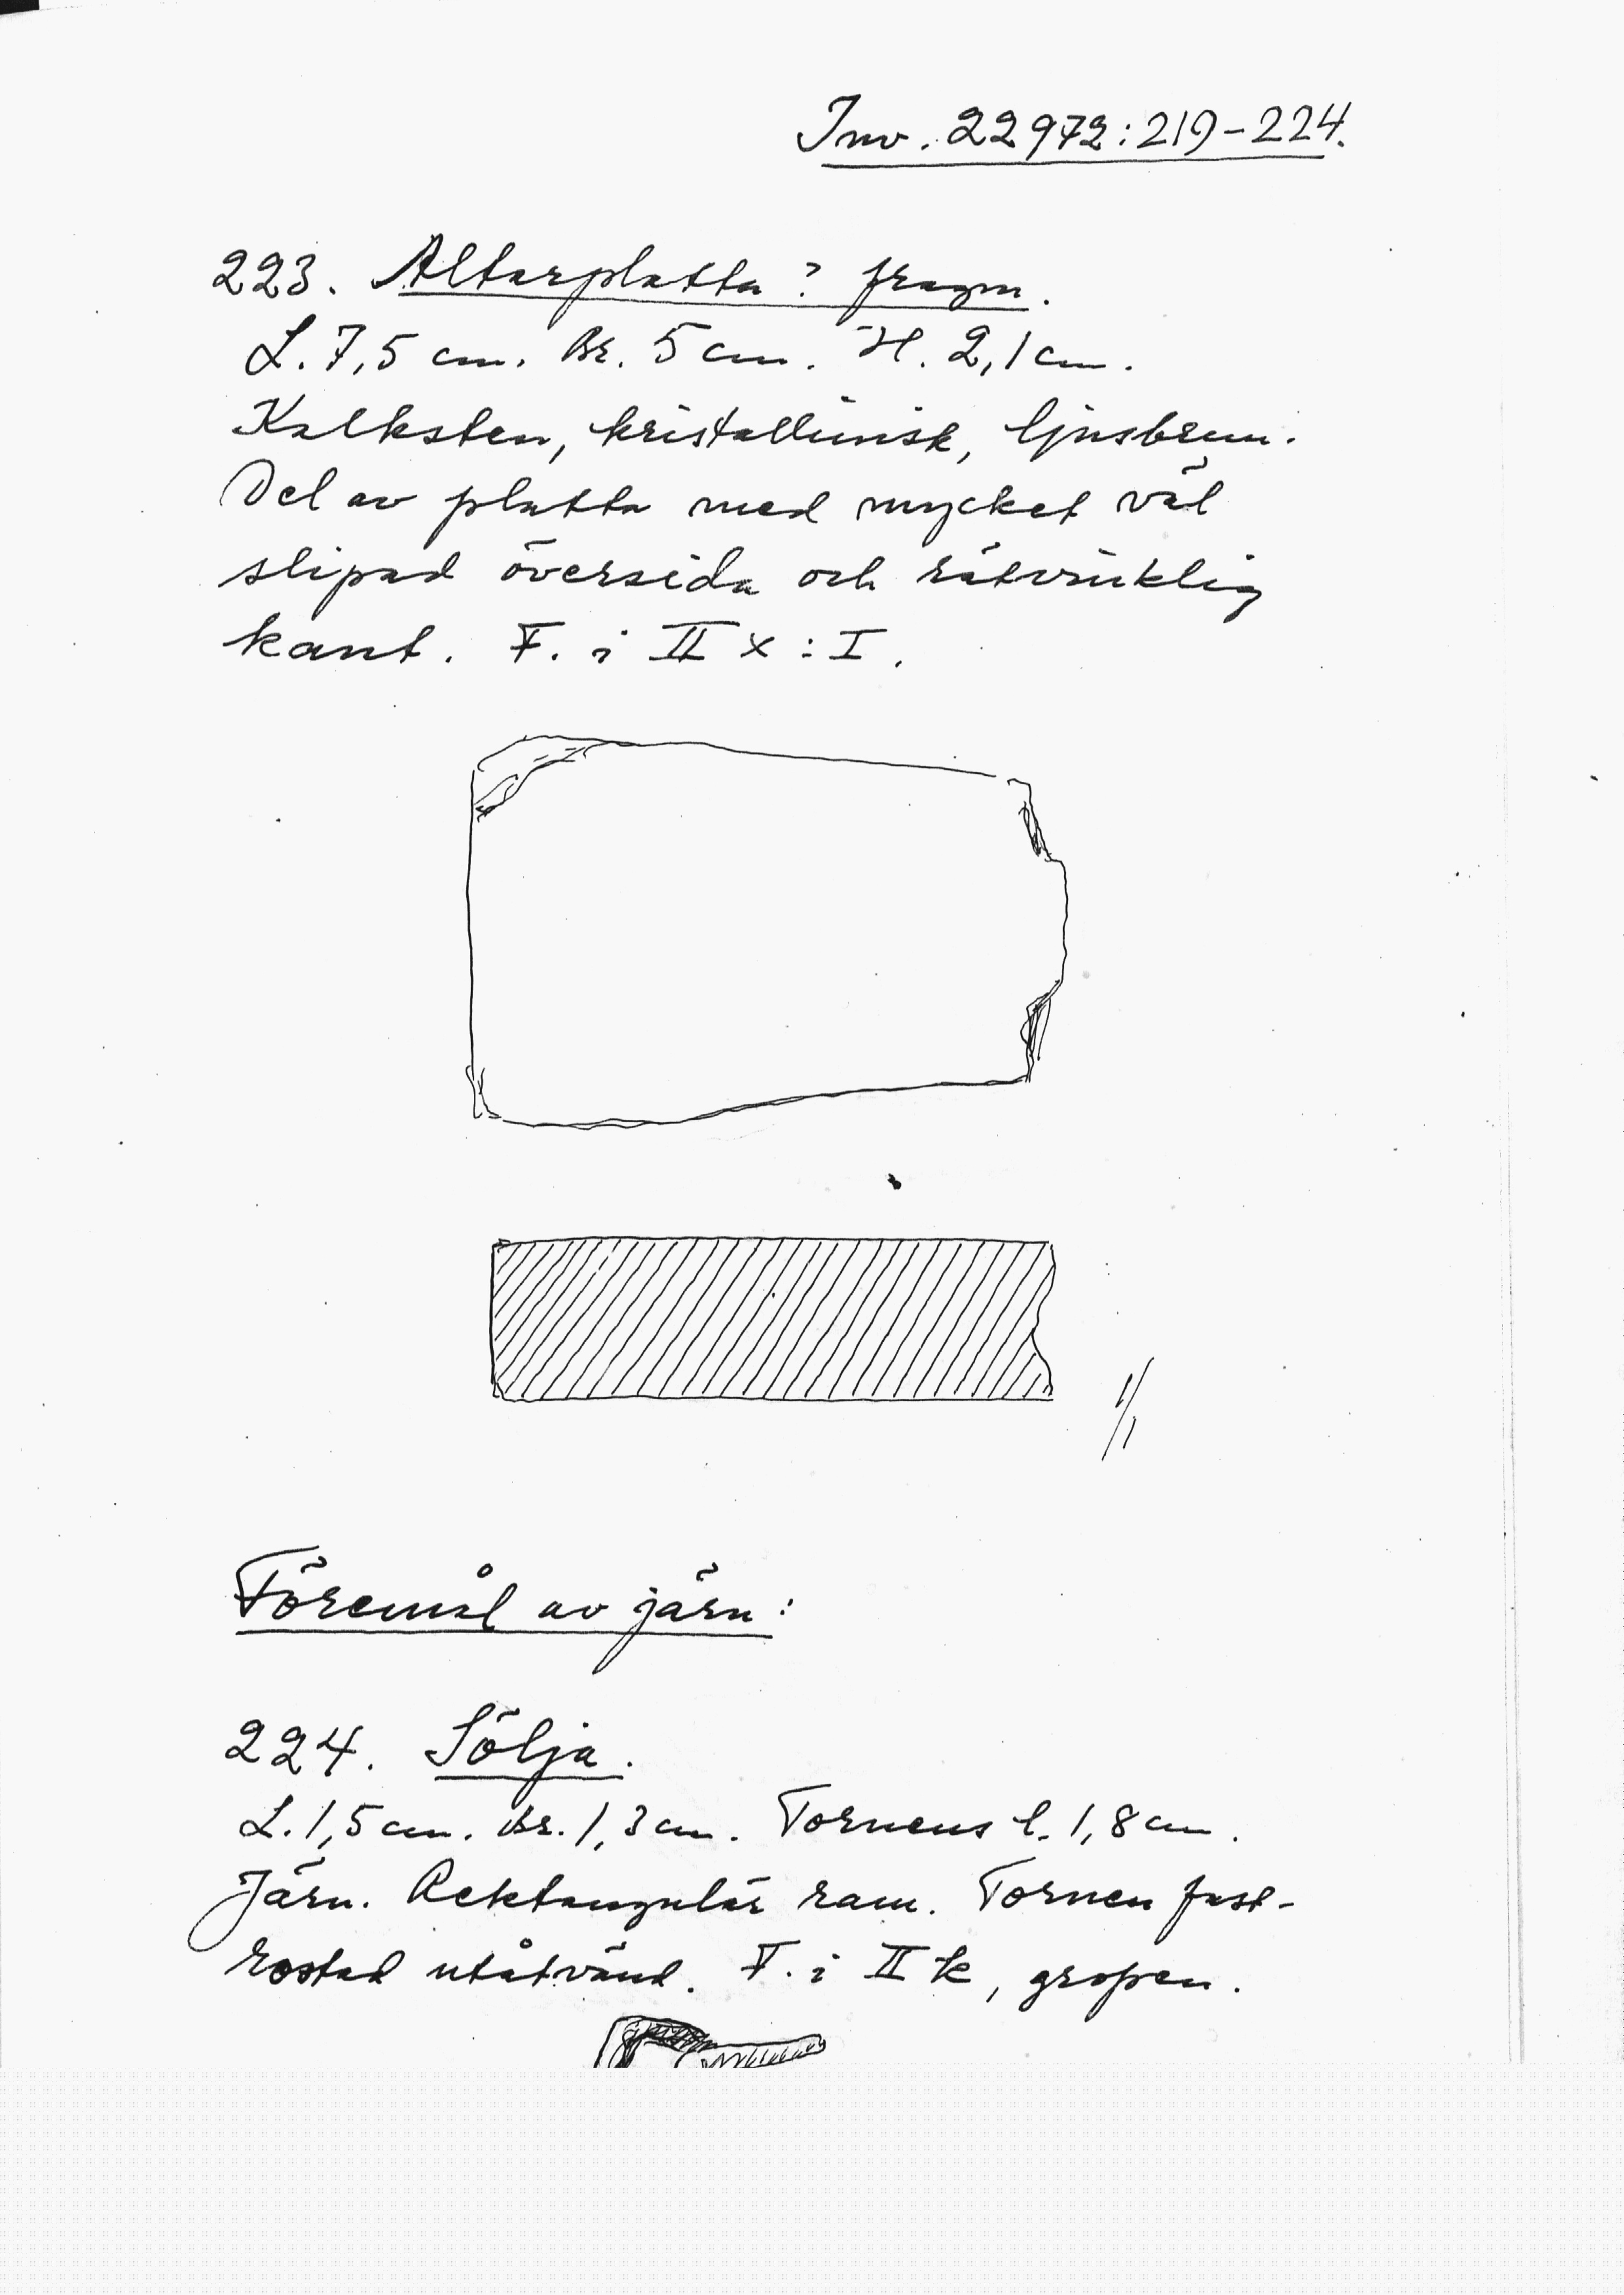 Inv. 22972:219-224.
223. Altarplatta? fragm.
L. 7,5 cm. Br. 5 cm. H. 2,1 cm.
Kalksten, kristallinisk, ljusbrun.
Del av platta med mycket väl
slipad översida och rätvinklig
kant. F. i II x : I.
1/1
Föremål av järn:
224. Sölja.
L. 1,5 cm. Br. 1,3 cm. Tornens l. 1,8 cm.
Järn. Rektangulär ram. Tornen fast-
rostad utåtvänd. F. i II k, gropen.